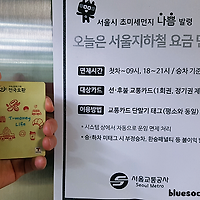 서울시 초미세먼지 나쁨 발령
오늘은 서울지하철 요금 면
면제시간 첫차~09시, 18~21시 / 승차 기준
대상카드 선·후불 교통카드 (1회권, 정기권 제
이용방법 교통카드 단말기 태그 (평소와 동일)
• 시스템 상에서 자동으로 운임 면제 처리
• 승·하차 미태그 시 부정승차, 환승패널티 등 불이익 발
서울교통공사
Seoul Metro
전국호환
T-money
Life
blueso